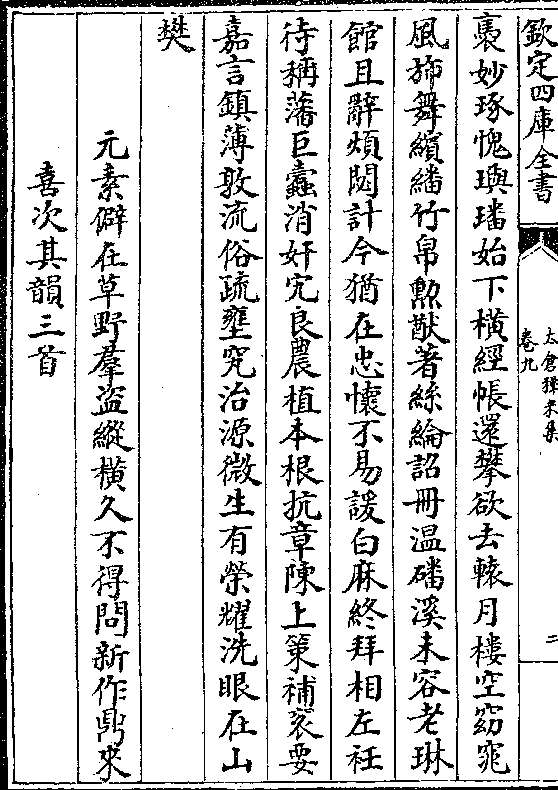 欽定四庫全書
太倉稊米集
卷九
二
褱妙琢愧璵璠始下橫經帳還攀欲去轅月樓空窈窕
風斾舞繽繙竹帛勲猷著絲綸詔冊温磻溪未容老琳
館且辭煩閎計今猶在忠懷不易諼白麻終拜相左衽
待稱藩巨蠧消奸宄良農植本根抗章陳上策補袞要
嘉言鎮薄敦流俗疏壅究治源微生有榮耀洗眼在山
樊
元素僻在草野羣盜縱橫久不得問新作鼎來
喜次其韻三首